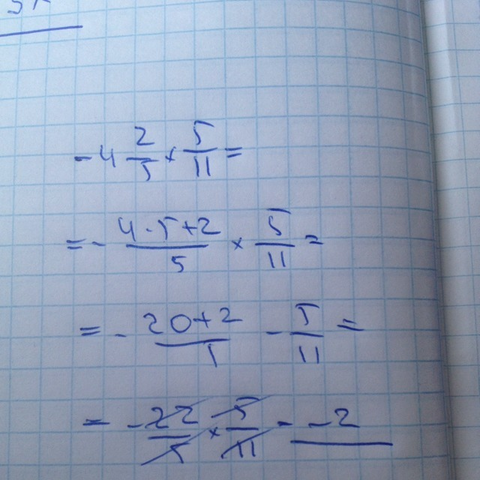 -4 2/5 × 5/11 =
= - 4·5+2/5 × 5/11 =
= - 20+2/5 - 5/11 =
= - 22/5 × 5/11 = -2